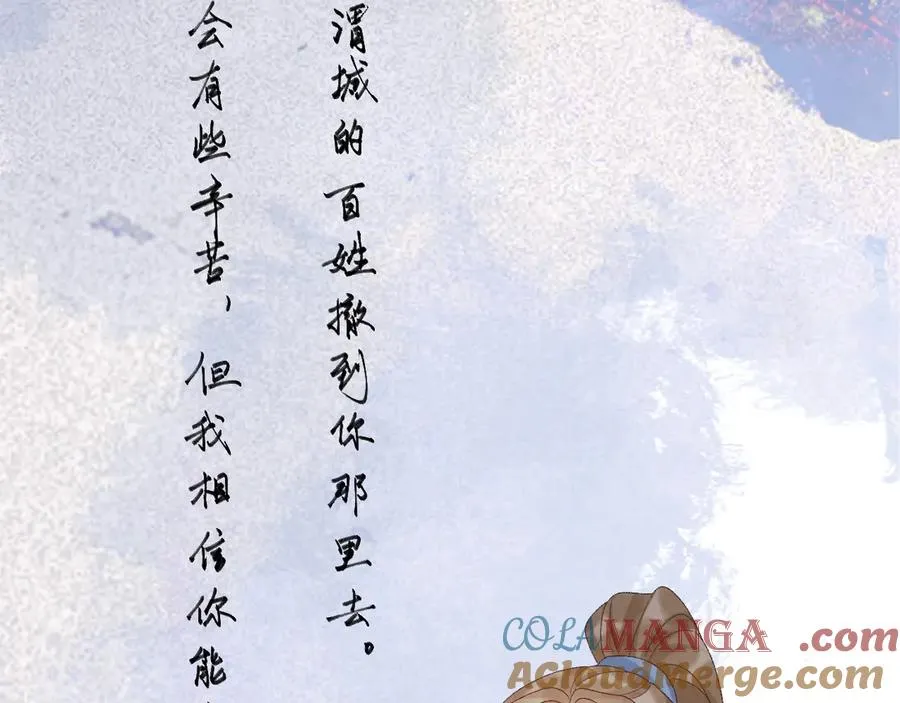 渭城的百姓撤到你那里去。
会有些辛苦，但我相信你能
COLAMANGA.com
ACloudMerge.com